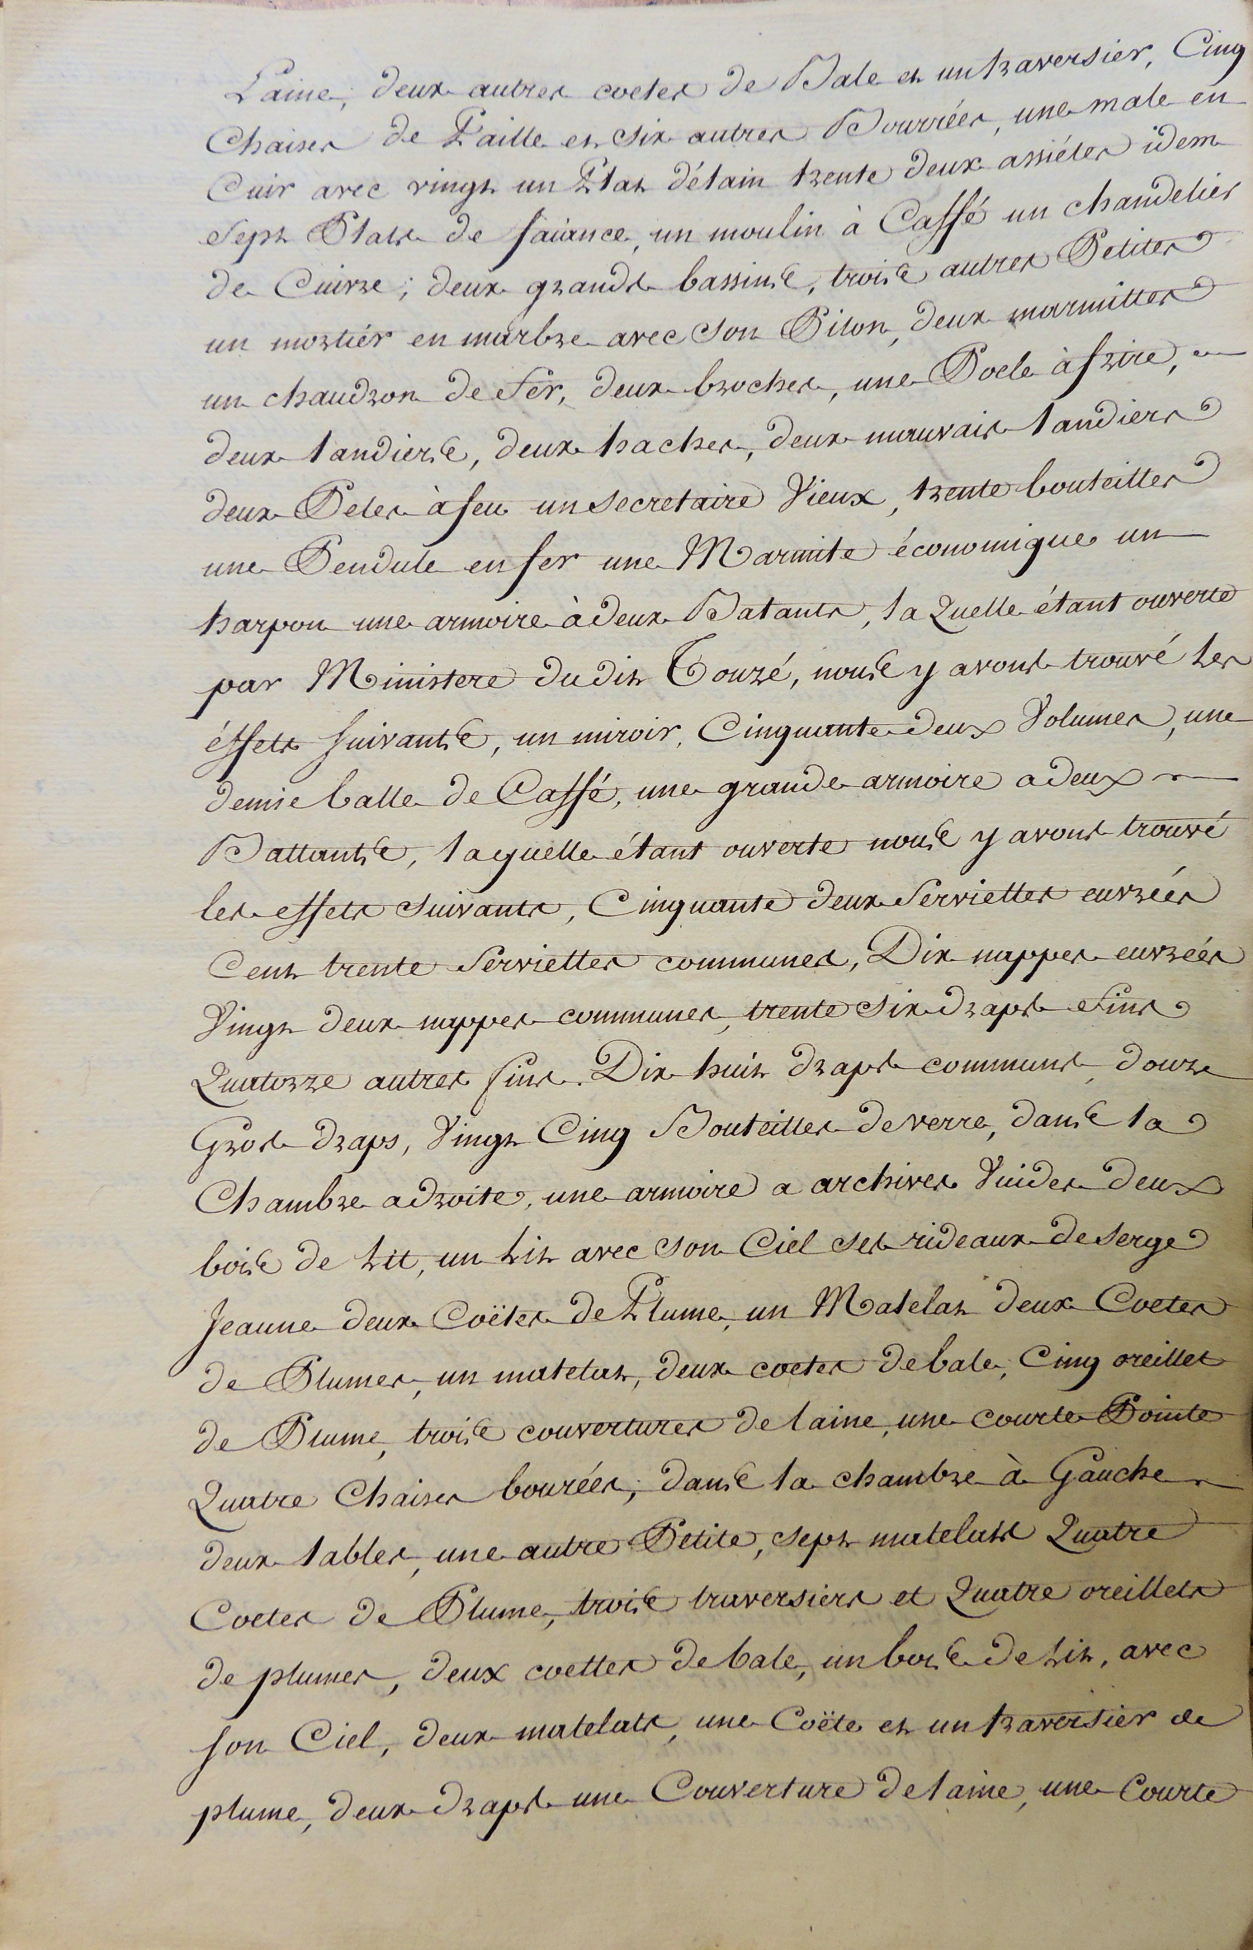 Laine, deux autres coetes de Bale et un traversier, Cinq
Chaises de Paille et six autres Bourrées, une male en
Cuir avec vingt un Plat d'étain trente deux assiétes idem
Sept Plats de faiance, un moulin à Caffé un chandelier
de Cuivre; deux grands bassins, trois autres Petites
un mortiér en marbre avec son Pilon, deux marmittes
un chaudron de Fer, deux broches, une Poele à frire,
deux landiers, deux haches, deux mauvais landiers
deux Peles à feu un Secretaire Vieux, trente bouteilles
une Pendule en fer une Marmite économique un
harpon une armoire à deux Batants, la Quelle étant ouverte
par Ministere dudit Touzé, nous y avons trouvé les
éffets suivants, un miroir, Cinquante deux Volumes, une
demie balle de Caffé, une grande armoire a deux
Battants, laquelle étant ouverte nous y avons trouvé
les effets suivants, Cinquante deux Serviettes euvrées
Cent trente Serviettes communes, Dix nappes euvrées
Vingt deux nappes communes, trente six draps Fins
Quatorze autres fins. Dix huit draps communs, douze
Gros draps, Vingt Cinq Bouteilles de verre, dans la
Chambre a droite, une armoire a archives Vuides deux
bois de Lit, un Lit avec son Ciel ses rideaux de Serge
Jeaune deux Coëtes de Plume, un Matelat deux Coetes
de Plumes, un matelat, deux coetes de bale, Cinq oreillet
de Plume, trois couvertures de laine, une courte Pointe
Quatre Chaises bourées; dans la chambre à Gauche
deux tables, une autre Petite, sept matelats Quatre
Coetes de Plume, trois traversiers et Quatre oreillets
de plumes, deux coettes de bale, un bois de Lit, avec
son Ciel, deux matelats, une Coëte et un traversier de
plume, deux draps une Couverture de laine, une Courte